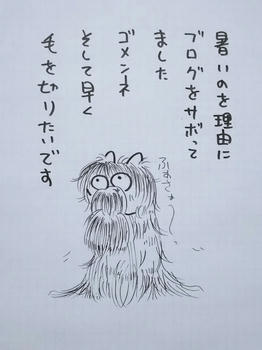 暑いのを理由に
ブログをサボって
ました
ゴメンネ
そして早く
毛を切りたいです